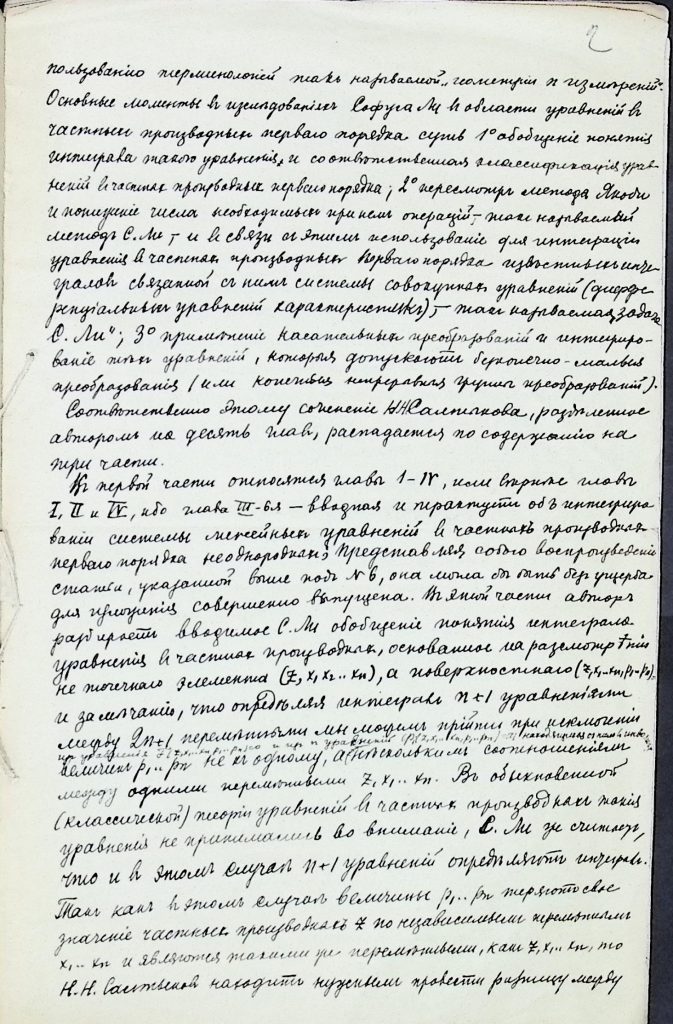 2
пользованію терминологіей такъ называемой „геометріи n измѣреній“.
Основные моменты въ изслѣдованіяхъ Софуса Ли въ области уравненій въ
частныхъ производныхъ перваго порядка суть 1° обобщеніе понятія
интеграла такого уравненія и соотвѣтственная классификація урав-
неній въ частныхъ производныхъ перваго порядка; 2° пересмотръ метода Якоби
и пониженіе числа необходимыхъ при немъ операцій, – такъ называемый
методъ С. Ли, – и въ связи съ этимъ использованіе для интеграціи
уравненія въ частныхъ производныхъ перваго порядка извѣстныхъ инте-
граловъ связанной съ нимъ системы совокупныхъ уравненій (диффе-
ренціальныхъ уравненій характеристикъ), – такъ называемая „задача
С. Ли“; 3° примѣненіе касательныхъ преобразованій и интегриро-
ваніе тѣхъ уравненій, которыя допускаютъ безконечно-малыя
преобразованія (или конечныя непрерывныя группы преобразованій).
Соотвѣтственно этому сочиненіе Н.Н. Салтыкова, раздѣленное
авторомъ на десять главъ, распадается по содержанію на
три части.
Къ первой части относятся главы I–IV, или вѣрнѣе главы
I, II и IV, ибо глава III-ья – вводная и трактуетъ объ интегриро-
ваніи системы линейныхъ уравненій въ частныхъ производныхъ
перваго порядка неоднородныхъ; представляя собою воспроизведеніе
статьи, указанной выше подъ № 6, она могла бы быть безъ ущерба
для изложенія совершенно выпущена. Въ этой части авторъ
разбираетъ вводимое С. Ли обобщеніе понятія интеграла
уравненія въ частныхъ производныхъ, основанное на разсмотрѣніи
не точечнаго элемента (z, x₁ x₂ .. xₙ), а поверхностнаго (z, x₁..xₙ, p₁..pₙ),
и замѣчаніи, что опредѣляя интегралъ n+1 уравненіями
между 2n+1 перемѣнными мы можемъ прійти при исключеніи
величинъ p₁.. pₙ не къ одному, а нѣсколькимъ соотношеніямъ
между одними перемѣнными z, x₁.. xₙ. Въ обыкновенной
(классической) теоріи уравненій въ частныхъ производныхъ такія
уравненія не принимались во вниманіе, С. Ли же считаетъ,
что и въ этомъ случаѣ n+1 уравненій опредѣляютъ интегралъ.
Такъ какъ въ этомъ случаѣ величины p₁.. pₙ теряютъ свое
значеніе частныхъ производныхъ z по независимымъ перемѣннымъ
x₁.. xₙ и являются такими же перемѣнными, какъ z, x₁.. xₙ, то
Н.Н. Салтыковъ находитъ нужнымъ провести разницу между